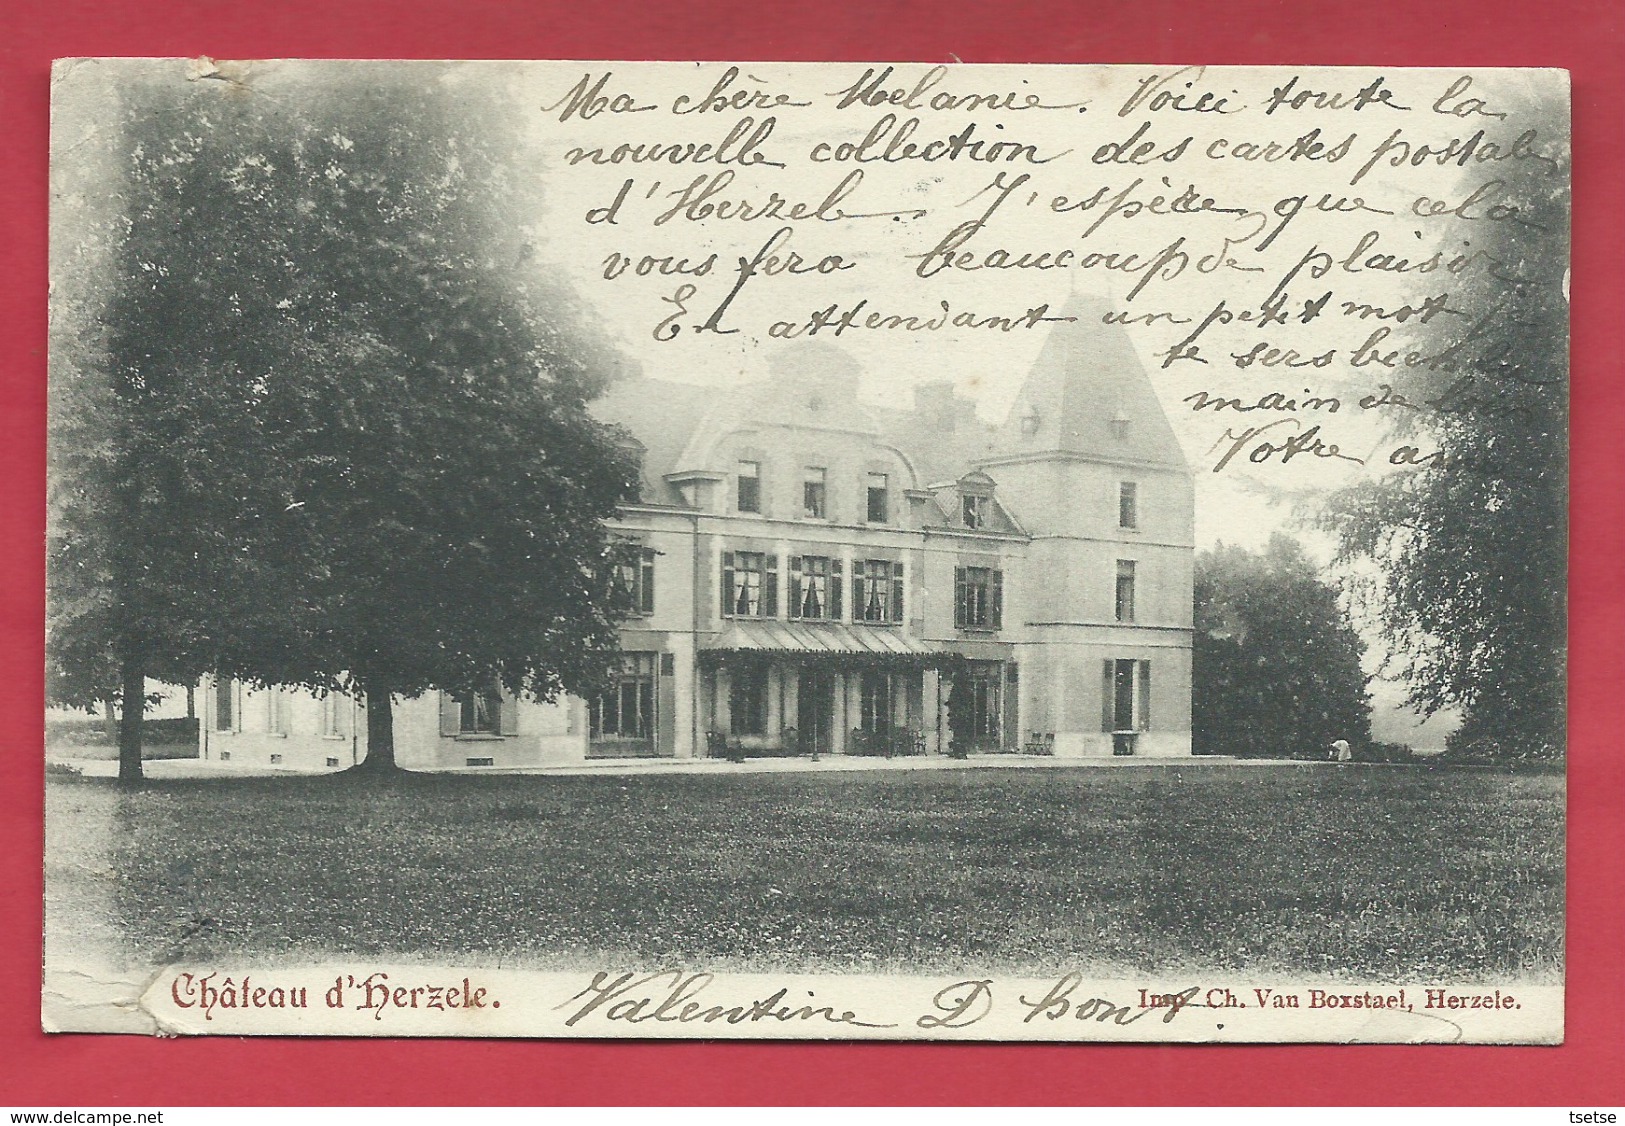 Ma chère Melanie. Voici toute la
nouvelle collection des cartes postale
d'Herzele. J'espère que cela
vous fera beaucoup de plaisir.
En attendant un petit mot
te sers bien la
main de loin
Votre
Château d'Herzele.
Valentine D'hont.
Imp. Ch. Van Boxstael, Herzele.
www.delcampe.net
tsetse